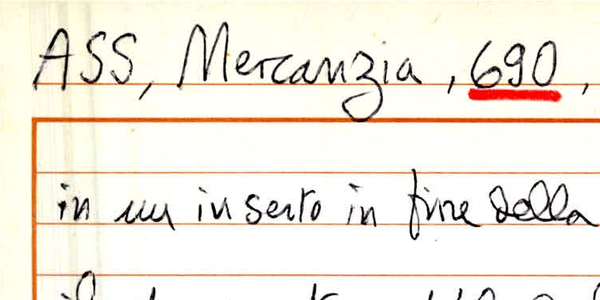 ASS, Mercanzia, 690,
in un inserto in fine della